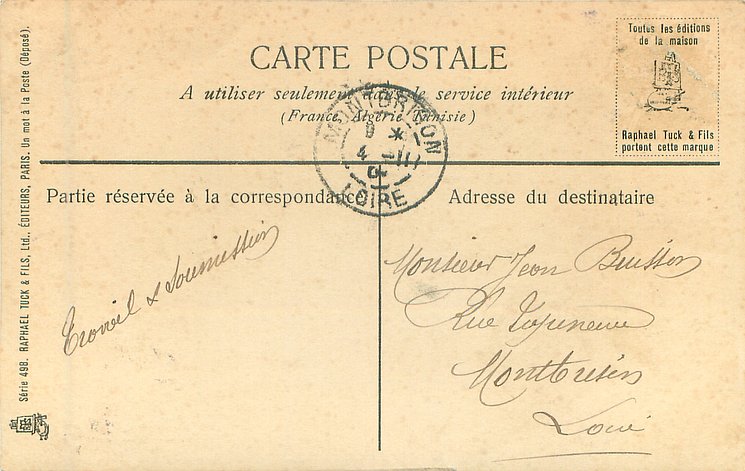 Toutes les éditions
de la maison
Raphael Tuck & Fils
portent cette marque
CARTE POSTALE
A utiliser seulement le service intérieur
(France, Algérie Tunisie)
MONTBRISON
9 *
4 -III
LOIRE
Partie réservée à la correspondance
Adresse du destinataire
Travail & Soumission
Monsieur Jean Buisson
Rue
Montbrison
Loire
Série 498. RAPHAEL TUCK & FILS, Ltd., ÉDITEURS, PARIS. Un mot à la Poste (Déposé).